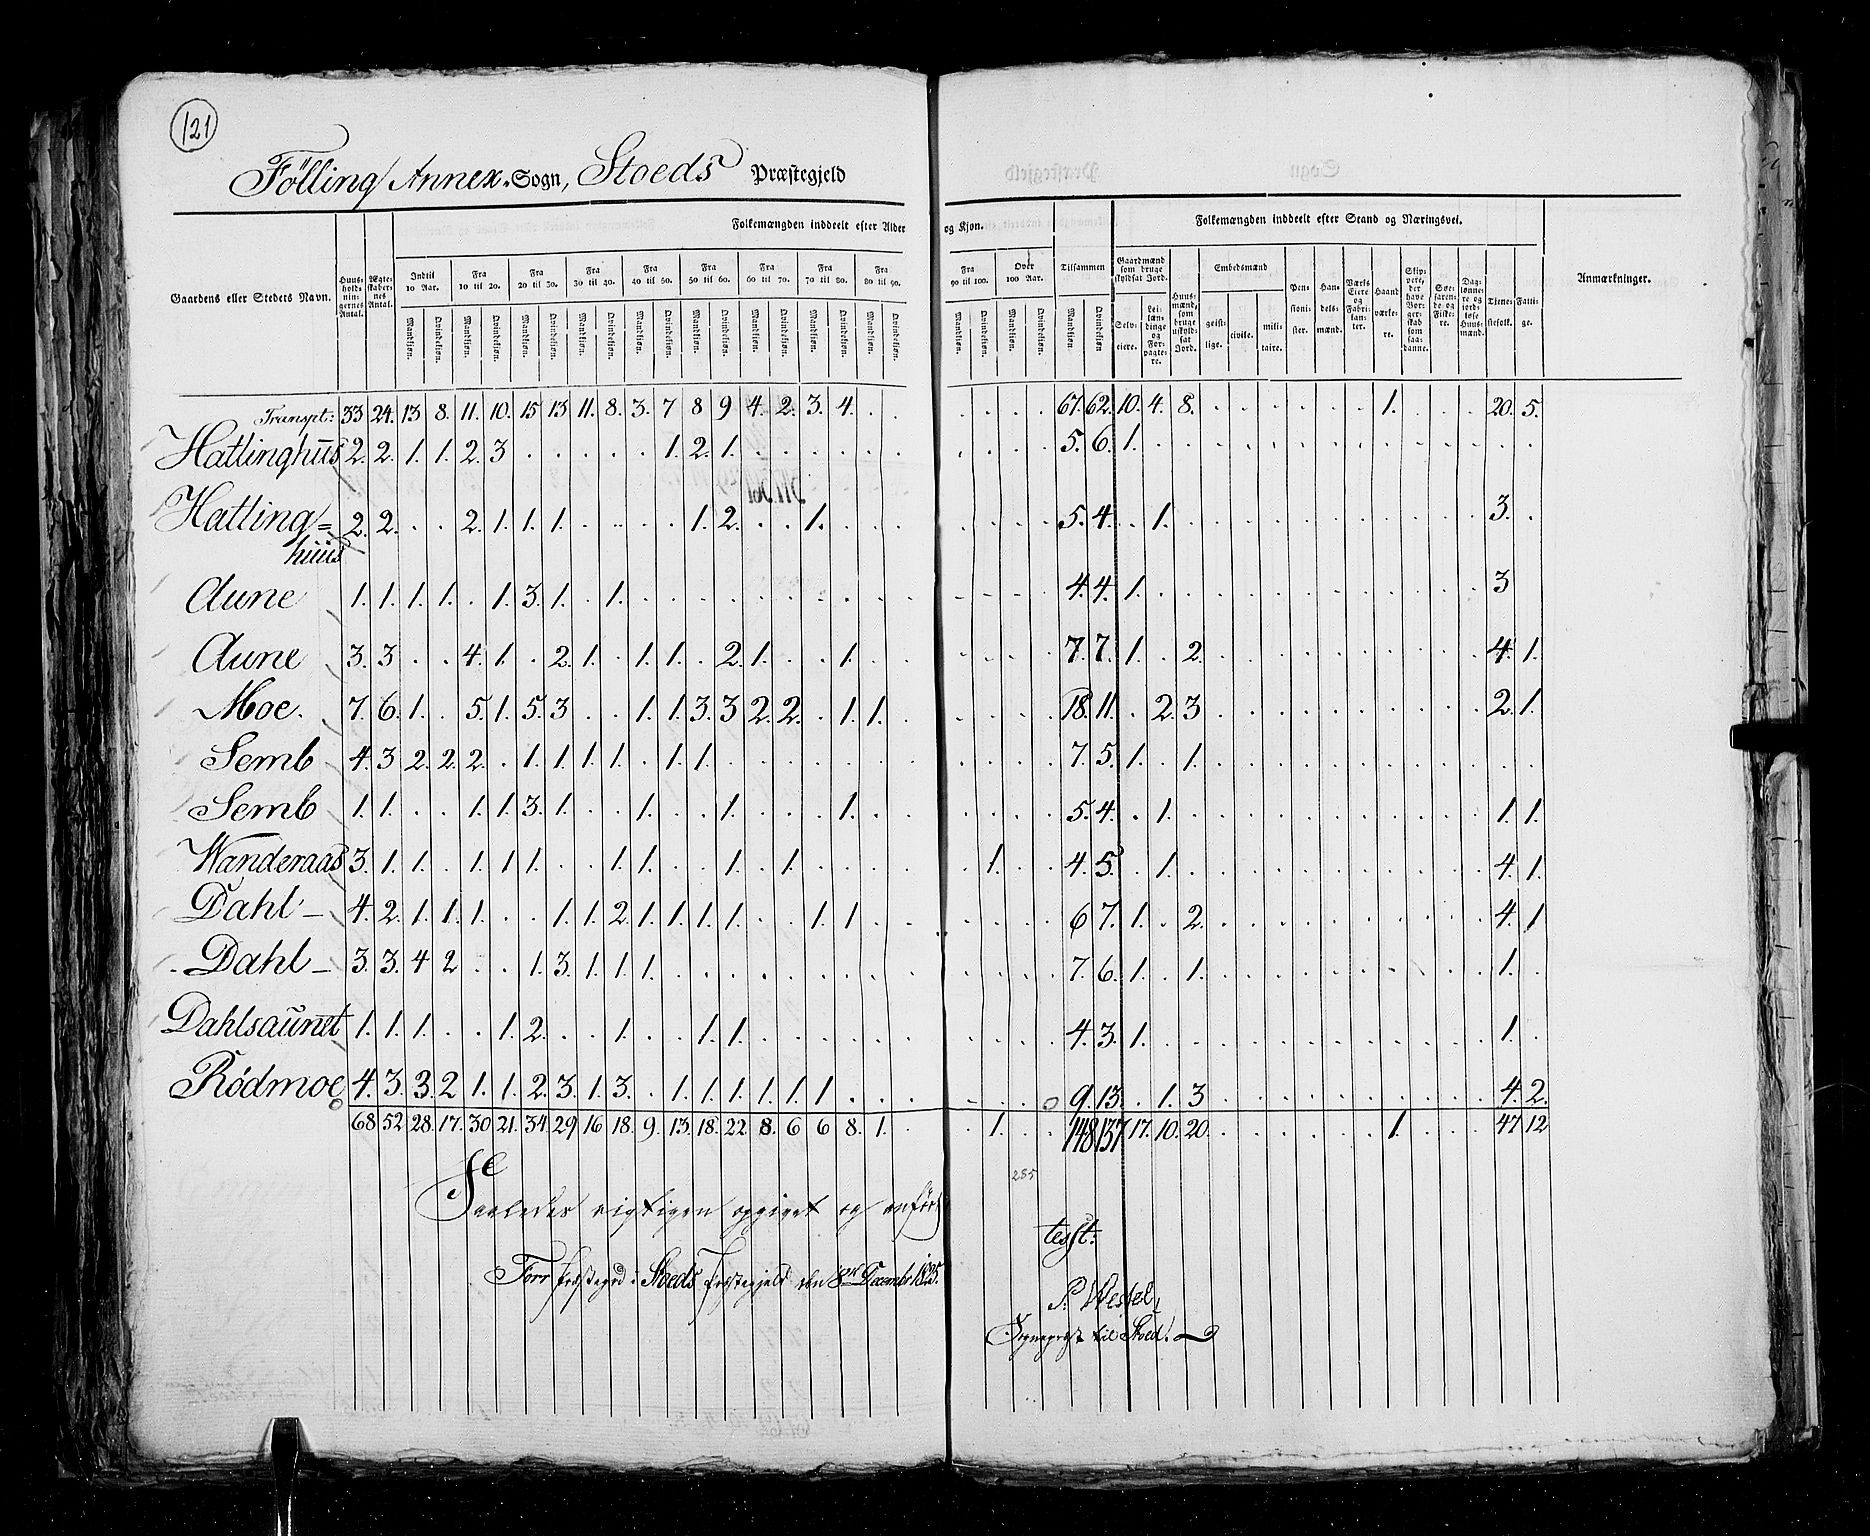 121
Fölling Annex-Sogn, Stoeds Præstegjeld
Folkemængden inddeelt efter Alder og Kjøn. Folkemængden inddeelt efter Stand og Næringsvei.
Gaardens eller Stedets Navn. Huus-hold-nin-gernes Antal. Ægte-skaber-nes Antal. Indtil 10 Aar. Fra 10 til 20. Fra 20 til 30. Fra 30 til 40. Fra 40 til 50. Fra 50 til 60. Fra 60 til 70. Fra 70 til 80. Fra 80 til 90. Fra 90 til 100. Over 100 Aar. Tilsammen Gaardmænd som bruge skyldsat Jord. Huus-mænd, som bruge uskyld-sat Jord. Embedsmænd Pen-sioni-ster. Han-dels-mænd. Værks Eiere og Fabri-kan-ter. Haand-værke-re. Skip-pere, der have Bor-ger-skab som saa-danne. Søe-faren-de og Fiske-re. Dag-lønne-re og jord-løse Huus-mænd. Tjene-stefolk. Fatti-ge. Anmærkninger.
Mandkjøn. Qvindekjøn. Mandkjøn. Qvindekjøn. Mandkjøn. Qvindekjøn. Mandkjøn. Qvindekjøn. Mandkjøn. Qvindekjøn. Mandkjøn. Qvindekjøn. Mandkjøn. Qvindekjøn. Mandkjøn. Qvindekjøn. Mandkjøn. Qvindekjøn. Mandkjøn. Qvindekjøn. Mandkjøn. Qvindekjøn. Mandkjøn. Qvindekjøn Selv-eiere. Lei-læn-dinge og For-pagte-re. geist-lige. civile. mili-taire.
Transpt: 33 24. 13 8. 11. 10. 15 13 11. 8. 3. 7 8 9 4. 2. 3. 4. . . . . . . 67. 62. 10. 4. 8. . . . . . . 1. . . . 20. 5.
Hatlinghus 2. 2. 1. 1. 2. 3 . . . . . 1. 2. 1. . . . . . . . . . . 5. 6. 1. . . . . . . . . . . . . . .
Hatling= 2. 2. . . 2. 1. 1. 1. . . . . 1. 2. . . 1. . . . . . . . 5. 4. . 1. . . . . . . . . . . . 3. .
huus
Aune 1. 1. 1. 1. . 1. 3. 1. . 1. . . . . . . . . . . . . . . 4. 4. 1. . . . . . . . . . . . . 3
Aune 3. 3 . . 4. 1. . 2. 1. . 1. 1. . 2. 1. . . 1. . . . . . . 7. 7. 1. . 2. . . . . . . . . . . 4. 1.
Moe. 7. 6. 1. . 5. 1. 5. 3 . . 1. 1. 3. 3 2. 2. . 1. 1. . . . . . 18. 11. . 2. 3 . . . . . . . . . . 2. 1.
Semb 4. 3 2. 2. 2. . 1. 1. 1. 1. . 1. 1. . . . . . . . . . . . 7. 5. 1. . 1. . . . . . . . . . . . .
Semb 1. 1. . . 1. 1. 3. 1. . . 1. . . 1. . . . 1. . . . . . . 5. 4. . 1. . . . . . . . . . . . 1. 1.
Wanderaas 3. 1. 1. . 1. 1. 1. . . 1. 1. . . 1. . 1. . . . . . 1. . . 4. 5. . 1. . . . . . . . . . . . 4. 1.
Dahl - 4. 2. 1. 1. 1. . . 1. 1. 2. 1. 1. 1. 1. . . 1. 1. . . . . . . 6 7. 1. . 2. . . . . . . . . . . 4. 1
Dahl - 3. 3. 4 2 . . 1. 3. 1. 1. 1. . . . . . . . . . . . . . 7. 6. 1. . 1. . . . . . . . . . . 1. .
Dahlsaunet 1. 1. 1. . . 1. 2. . . 1. . . 1. 1. . . . . . . . . . . 4. 3. 1. . . . . . . . . . . . . 1. .
Rödmoe 4. 3. 3. 2 1. 1. 2. 3. 1. 3. . 1. 1. 1. 1. 1. 1. 1 . . . . . . 9. 13. . 1. 3 . . . . . . . . . . 4. 2.
68 52 28. 17. 30 21. 34. 29 16 18. 9. 13. 18. 22. 8. 6 6 8. 1. . . 1. . . 148 137 17. 10. 20. . . . . . . 1. . . . 47 12
285
Saaledes rigtigen opgivet og anført
test:
Forr Præstegrd i Stoeds Præstegjeld den 8de Decembr 1825.
P. Westel,
Sognepræst til Stoed.